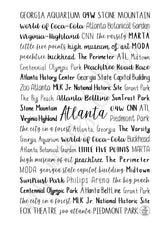 GEORGIA AQUARIUM OAW STONE MOUNTAIN
world of Coca-Cola Atlanta Botanical Garden
Virginia-Highland CNN the varsity MARTA
little five points high museum of art MODA
peachtree buckhead The Perimeter ATL Midtown
Centennial Olympic Park Peachtree Road Race
Atlanta History Center Georgia State Capitol Building
Zoo Atlanta M.L.K. Jr. National Historic Site Grant Park
The Big Peach Atlanta Beltline SunTrust Park
Stone Mountain OAW CNN ATL
Virginia Highland Atlanta Piedmont Park
the city in a forest Atlanta The Varsity
world of Coca-Cola Midtown Buckhead
Atlanta Botanical Garden little five points MARTA
high museum of art peachtree The Perimeter
MODA georgia state capitol building Midtown
SunTrust Park Philips Arena the big peach
Centennial Olympic Park Atlanta Beltline Grant Park
the city in a forest M.L.K. Jr. National Historic Site
FOX THEATRE zoo atlanta PIEDMONT PARK